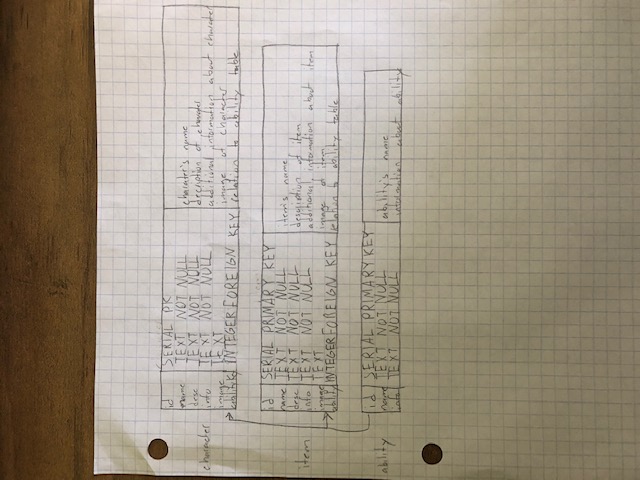 id SERIAL PK
name TEXT NOT NULL charater's name
desc TEXT NOT NULL decription of charater
character info TEXT NOT NULL additional information about character
image TEXT image of character
ability INTEGER FOREIGN KEY relation to ability table
id SERIAL PRIMARY KEY
name TEXT NOT NULL item's name
desc TEXT NOT NULL description of item
item info TEXT NOT NULL additional information about item
image TEXT image of item
ability INTEGER FOREIGN KEY relation to ability table
id SERIAL PRIMARY KEY
ability name TEXT NOT NULL ability's name
info TEXT NOT NULL information about ability